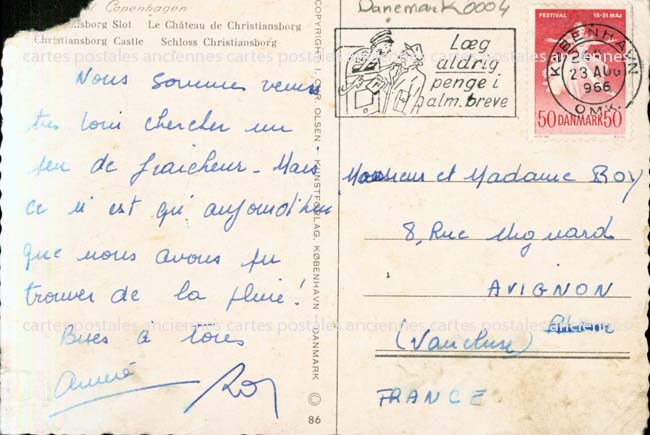 Copenhagen
sborg Slot Le Château de Christiansborg
Christiansborg Castle Schloss Christiansborg
Nous sommes venus
très loin chercher un
peu de fraicheur - Mais
ce n'est qu'aujourd'hui
que nous avons pu
trouver de la pluie!
Bises à tous
COPYRIGHT: I. CHR. OLSEN • KUNSTFORLAG, KØBENHAVN — DANMARK ©
86
Danemark0004
Læg
aldrig
penge i
alm. breve
FESTIVAL 15-31 MAJ
KØBENHAVN
23 AUG
966
OMK.
50 DANMARK 50
Monsieur et Madame ROY
8, Rue Mignard
AVIGNON
(Vaucluse)
FRANCE
cartes postales anciennes cartes postales anciennes cartes postales anciennes
cartes postales anciennes cartes postales anciennes cartes postales anciennes